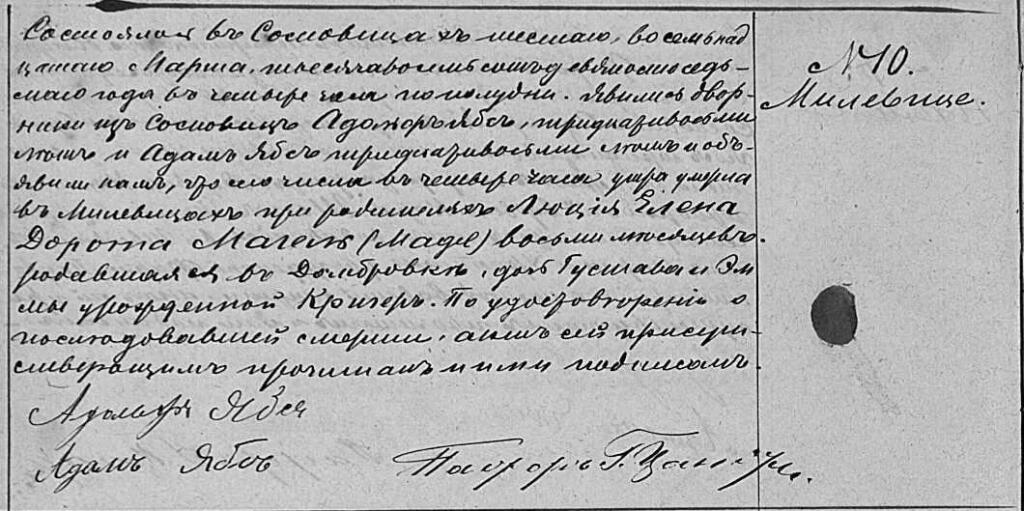 Состоялся въ Сосновицахъ шестаго, восемьнад
цатаго Марта, тысяча восемьсотъ девяносто седь-
маго года въ четыре часа по полудни. Явились двор-
ники изъ Сосновицъ Адольфъ Ябсъ, тридцати восьми
лѣтъ и Адамъ Ябсъ тридцати восьми лѣтъ и объ-
явили намъ, что сего числа въ четыре часа утра умерла
въ Милевицахъ при родителяхъ Люція Елена
Дорота Магель (Magel) восьми мѣсяцевъ.
родившаяся въ Домбровкѣ, дочь Густава и Эм
мы урожденной Кригеръ. По удостовѣреніи о
послѣдовавшей смерти, актъ сей присут-
ствующимъ прочитанъ и ими подписанъ.
Адольфъ Ябсъ
Адамъ Ябсъ
Пасторъ Г.
N 10.
Милевице.